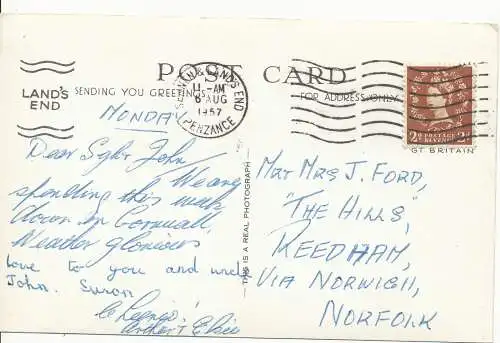 POST CARD
LAND'S END SENDING YOU GREETINGS
SENNEN & LAND'S END
11-AM
6 AUG
1957
PENZANCE
FOR ADDRESS ONLY
2D POSTAGE REVENUE 2D
GT BRITAIN
MONDAY
Dear John
We are
spending this week
down in Cornwall
Weather glorious
love to you and
John. Susan
Cheerio!
Arthur & Elsie
THIS IS A REAL PHOTOGRAPH
MR & MRS J. FORD,
"THE HILLS,"
REEDHAM,
VIA NORWICH,
NORFOLK